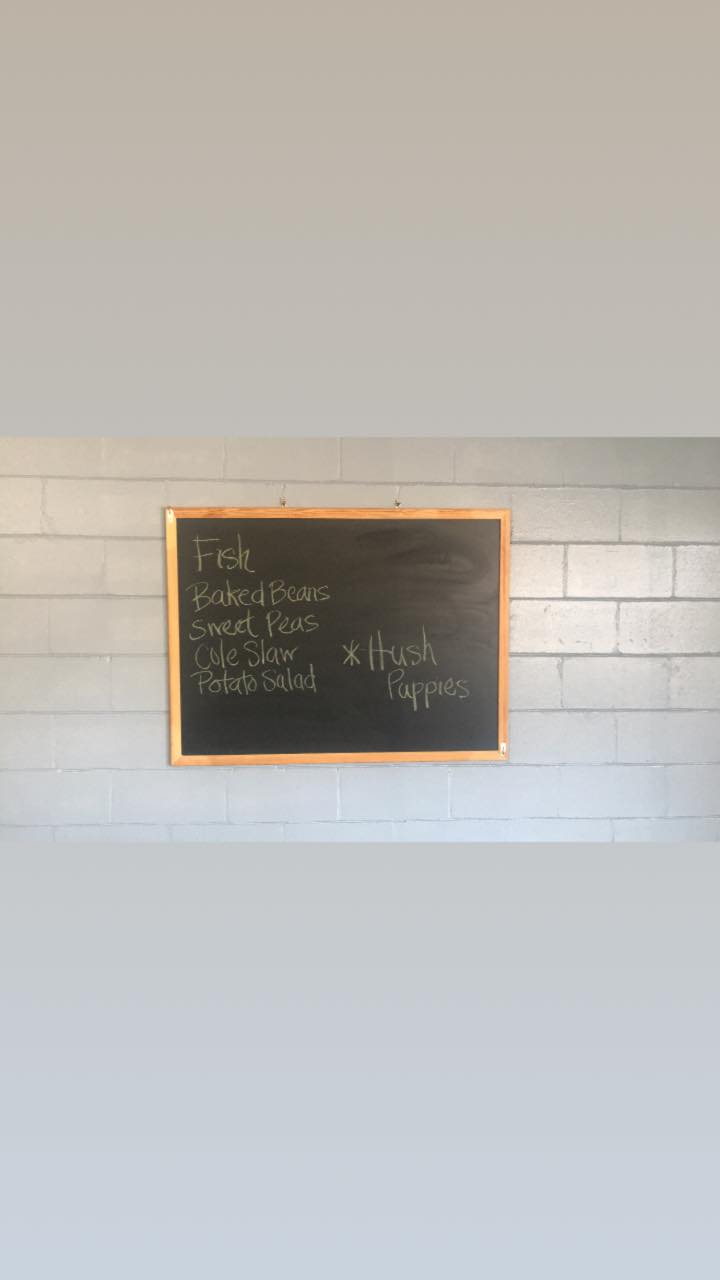 Fish
Baked Beans
Sweet Peas
Cole Slaw
Potato Salad
*Hush
Puppies